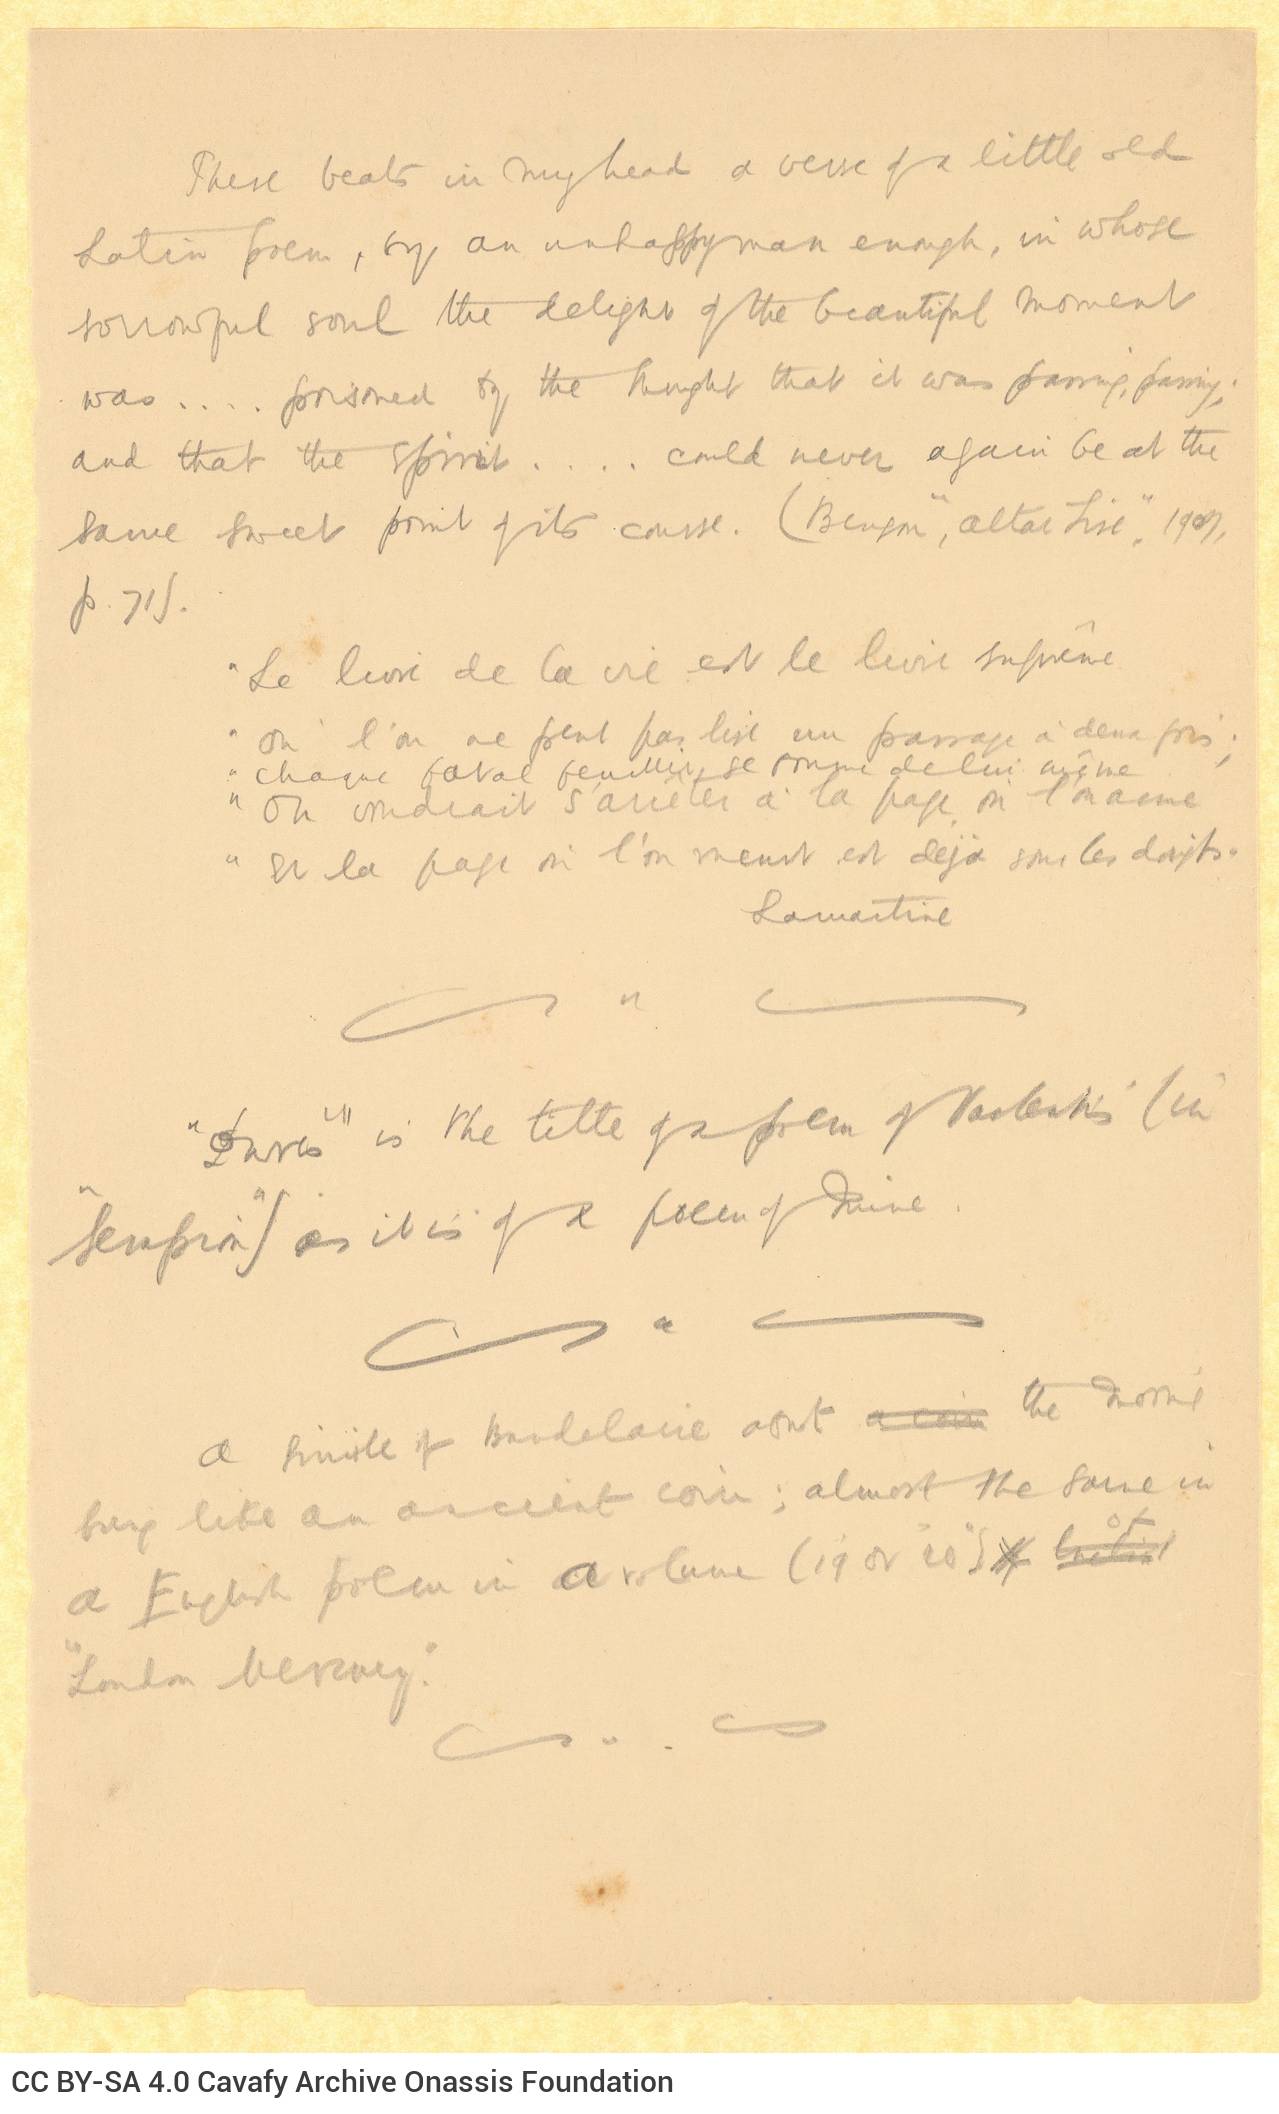 There beats in my head a verse of a little old
Latin poem, by an unhappy man enough, in whose
sorrowful soul the delight of the beautiful moment
was .... poisoned by the thought that it was passing, passing;
and that the spirit ..... could never again be at the
same sweet point of its course. (Benson, "Altar Fire", 1907,
p. 71).
"Le livre de la vie est le livre suprême
" où l'on ne peut pas lire un passage à deux fois;
" chaque fatal feuillet se tourne de lui même
" On voudrait s'arrêter à la page où l'on aime
" Et la page où l'on meurt est déjà sous les doigts.
Lamartine
"
is the title of a poem of (in
") as it is of a poem of mine.
"
A simile of Baudelaire about a coin the moon's
being like an ancient coin; almost the same in
a English poem in a volume (19 or 20) of
"London Mercury."